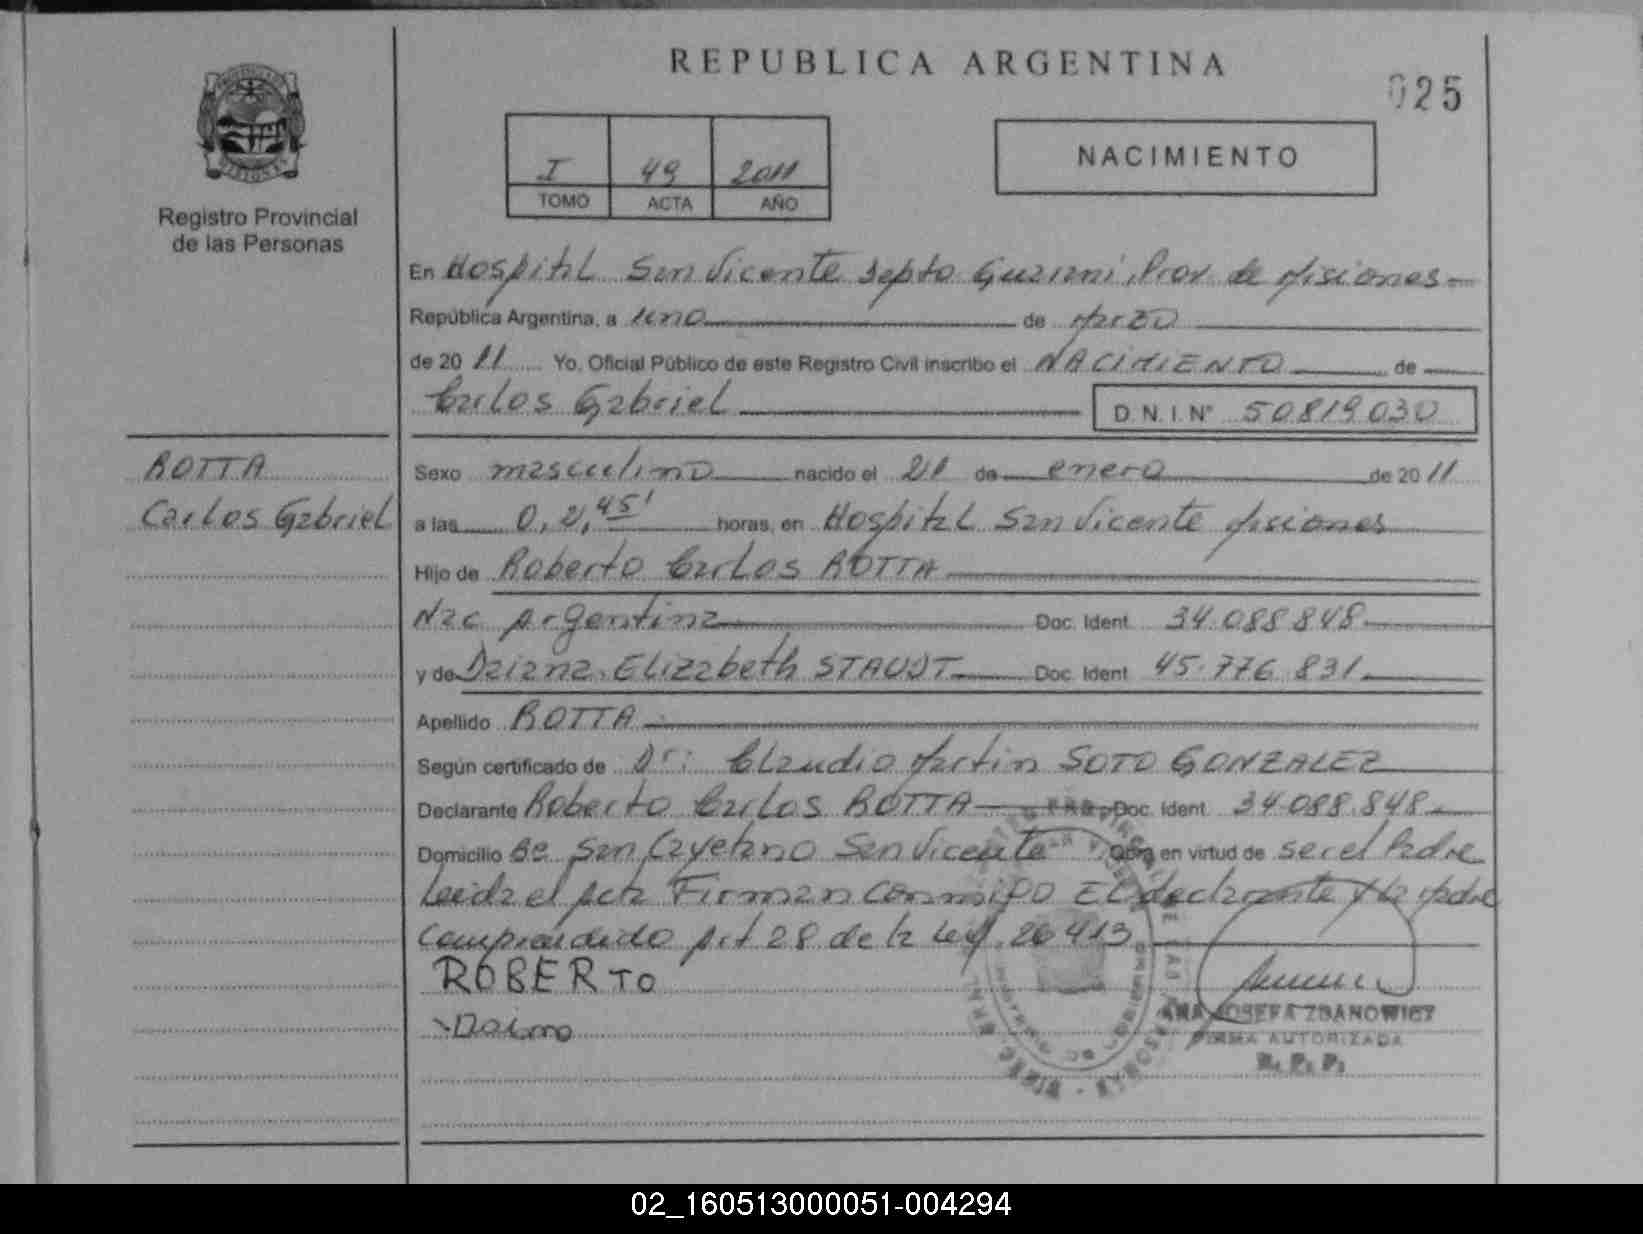 REPUBLICA ARGENTINA
025
I 49 2011
TOMO ACTA AÑO
NACIMIENTO
Registro Provincial
de las Personas
En Hospital San Vicente Depto Guarani, Prov. de Misiones
República Argentina, a uno de Marzo
de 2011 Yo, Oficial Público de este Registro Civil inscribo el NACIMIENTO de
Carlos Gabriel D.N.I. N° 50819030
ROTTA
Carlos Gabriel
Sexo masculino nacido el 21 de enero de 2011
a las 0,2,45' horas, en Hospital San Vicente Misiones
Hijo de Roberto Carlos ROTTA
Nac Argentina Doc. Ident. 34.088848
y de Daiana Elizabeth STAUDT Doc. Ident. 45.776.831
Apellido ROTTA
Según certificado de Dr: Claudio Martin SOTO GONZALEZ
Declarante Roberto Carlos ROTTA Doc. Ident. 34.088.848
Domicilio Bº San Cayetano San Vicente Obra en virtud de ser el Padre
Leida el Acta Firman conmigo El declarante y la Madre
Comprendido Art 28 de la Ley 26413
ROBERTO
ANA JOSEFA ZDANOWICZ
FIRMA AUTORIZADA
R. P. P.
02_160513000051-004294